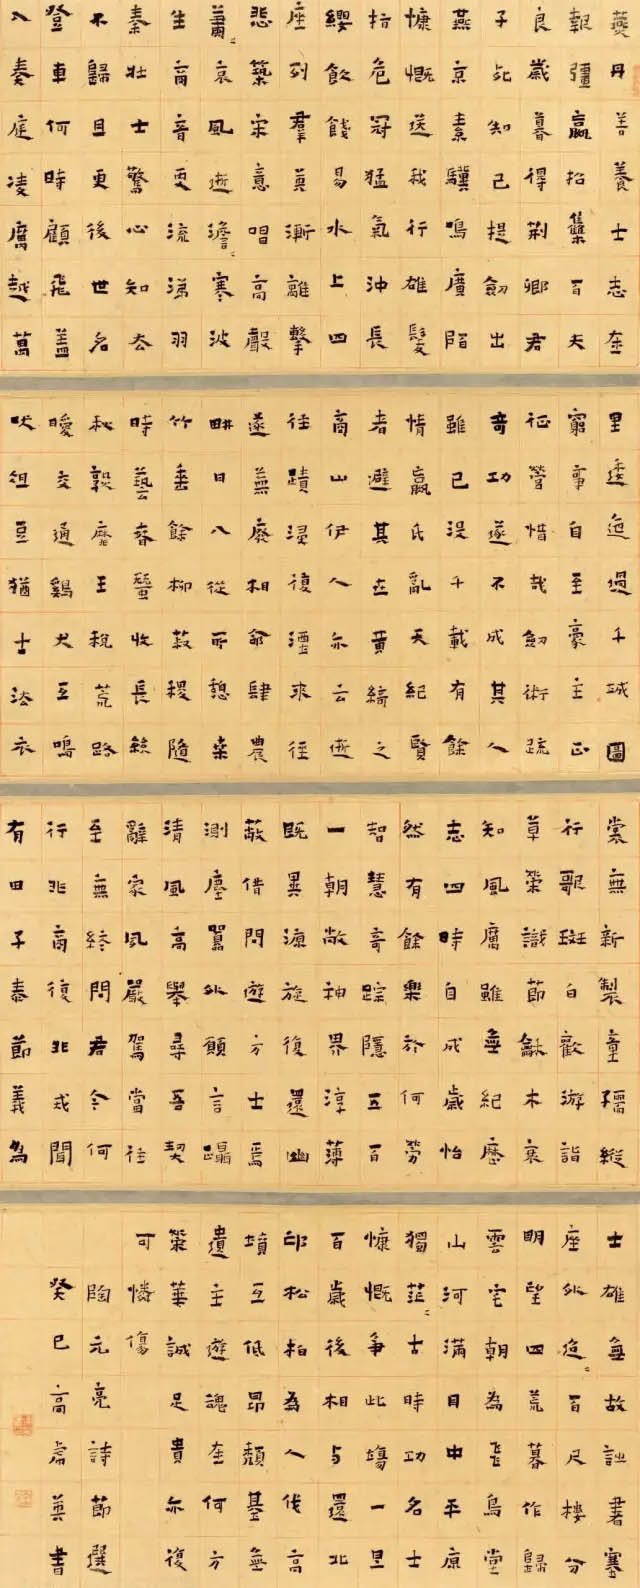 燕丹善養士志在
報彊嬴招集百夫
良歲暮得荆卿君
子死知己提劍出
燕京素驥鳴廣陌
慷慨送我行雄髮
指危冠猛氣沖長
纓飲餞易水上四
座列羣英漸離擊
悲築宋意唱高聲
蕭〻哀風逝澹〻寒波
生商音更流涕羽
奏壯士驚心知去
不歸且更後世名
登車何時顧飛盖
入秦庭凌厲越萬
里逶迤過千城圖
窮事自至豪主正
怔營惜哉劍術疏
奇功遂不成其人
雖已沒千載有餘
情嬴氏亂天紀賢
者避其世黄綺之
商山伊人亦云逝
往蹟浸復湮來徑
遂蕪廢相命肆農
耕日入從所憩桑
竹垂餘柳菽稷隨
時藝春蠶收長絲
秋熟靡王稅荒路
曖交通鷄犬互鳴
吠俎豆猶古法衣
裳無新製童孺縱
行歌斑白歡游詣
草榮識節龢木衰
知風厲雖無紀歷
志四時自成歲怡
然有餘樂於何勞
智慧奇踪隱五百
一朝敞神界淳薄
既異源旋復還幽
蔽借問遊方士焉
測塵囂外願言躡
清風高舉尋吾契
辭家夙嚴駕當往
至無終問君今何
行非商復非戎聞
有田子泰節義為
士雄無故誼書塞
座外迢〻百尺樓分
明望四荒暮作歸
雲宅朝為飛鳥堂
山河滿目中平原
獨茫〻古時功名士
慷慨爭此場一旦
百歲後相与還北
邙松柏為人伐高
墳互低昂頹基無
遺主遊魂在何方
榮華誠足貴亦復
可憐傷
陶元亮詩節選
癸巳高英書